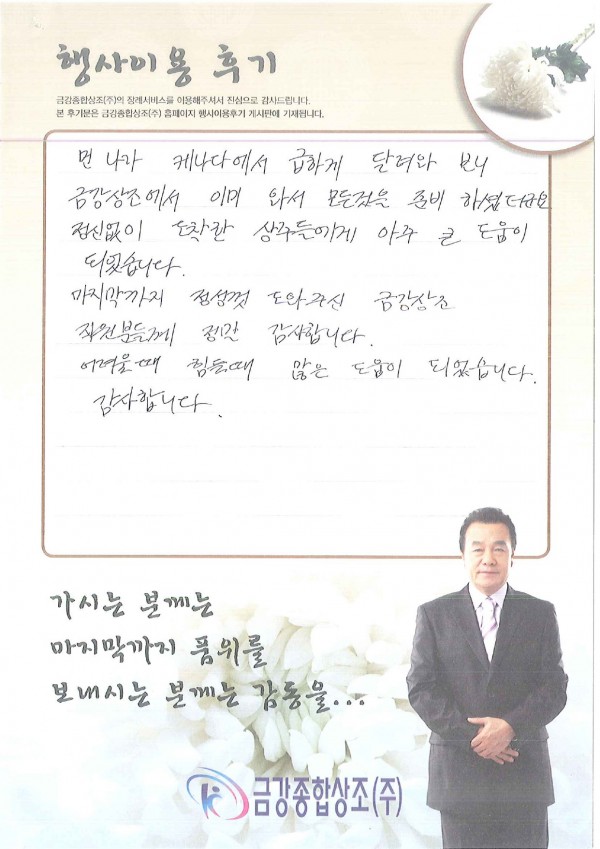 행사이용 후기
금강종합상조(주)의 장례서비스를 이용해주셔서 진심으로 감사드립니다.
본 후기분은 금강종합상조(주) 홈페이지 행사이용후기 게시판에 기재됩니다.
먼 나가 케나다에서 급하게 달려와 보니
금강상조에서 이미 와서 모든것을 준비 하셨더군요
정신없이 도착한 상주들에게 아주 큰 도움이
되었습니다.
마지막까지 정성껏 도와주신 금강상조
직원분들께 정말 감사합니다.
어려울때 힘들때 많은 도움이 되었습니다.
감사합니다.
가시는 분께는
마지막까지 품위를
보내시는 분께는 감동을...
금강종합상조(주)